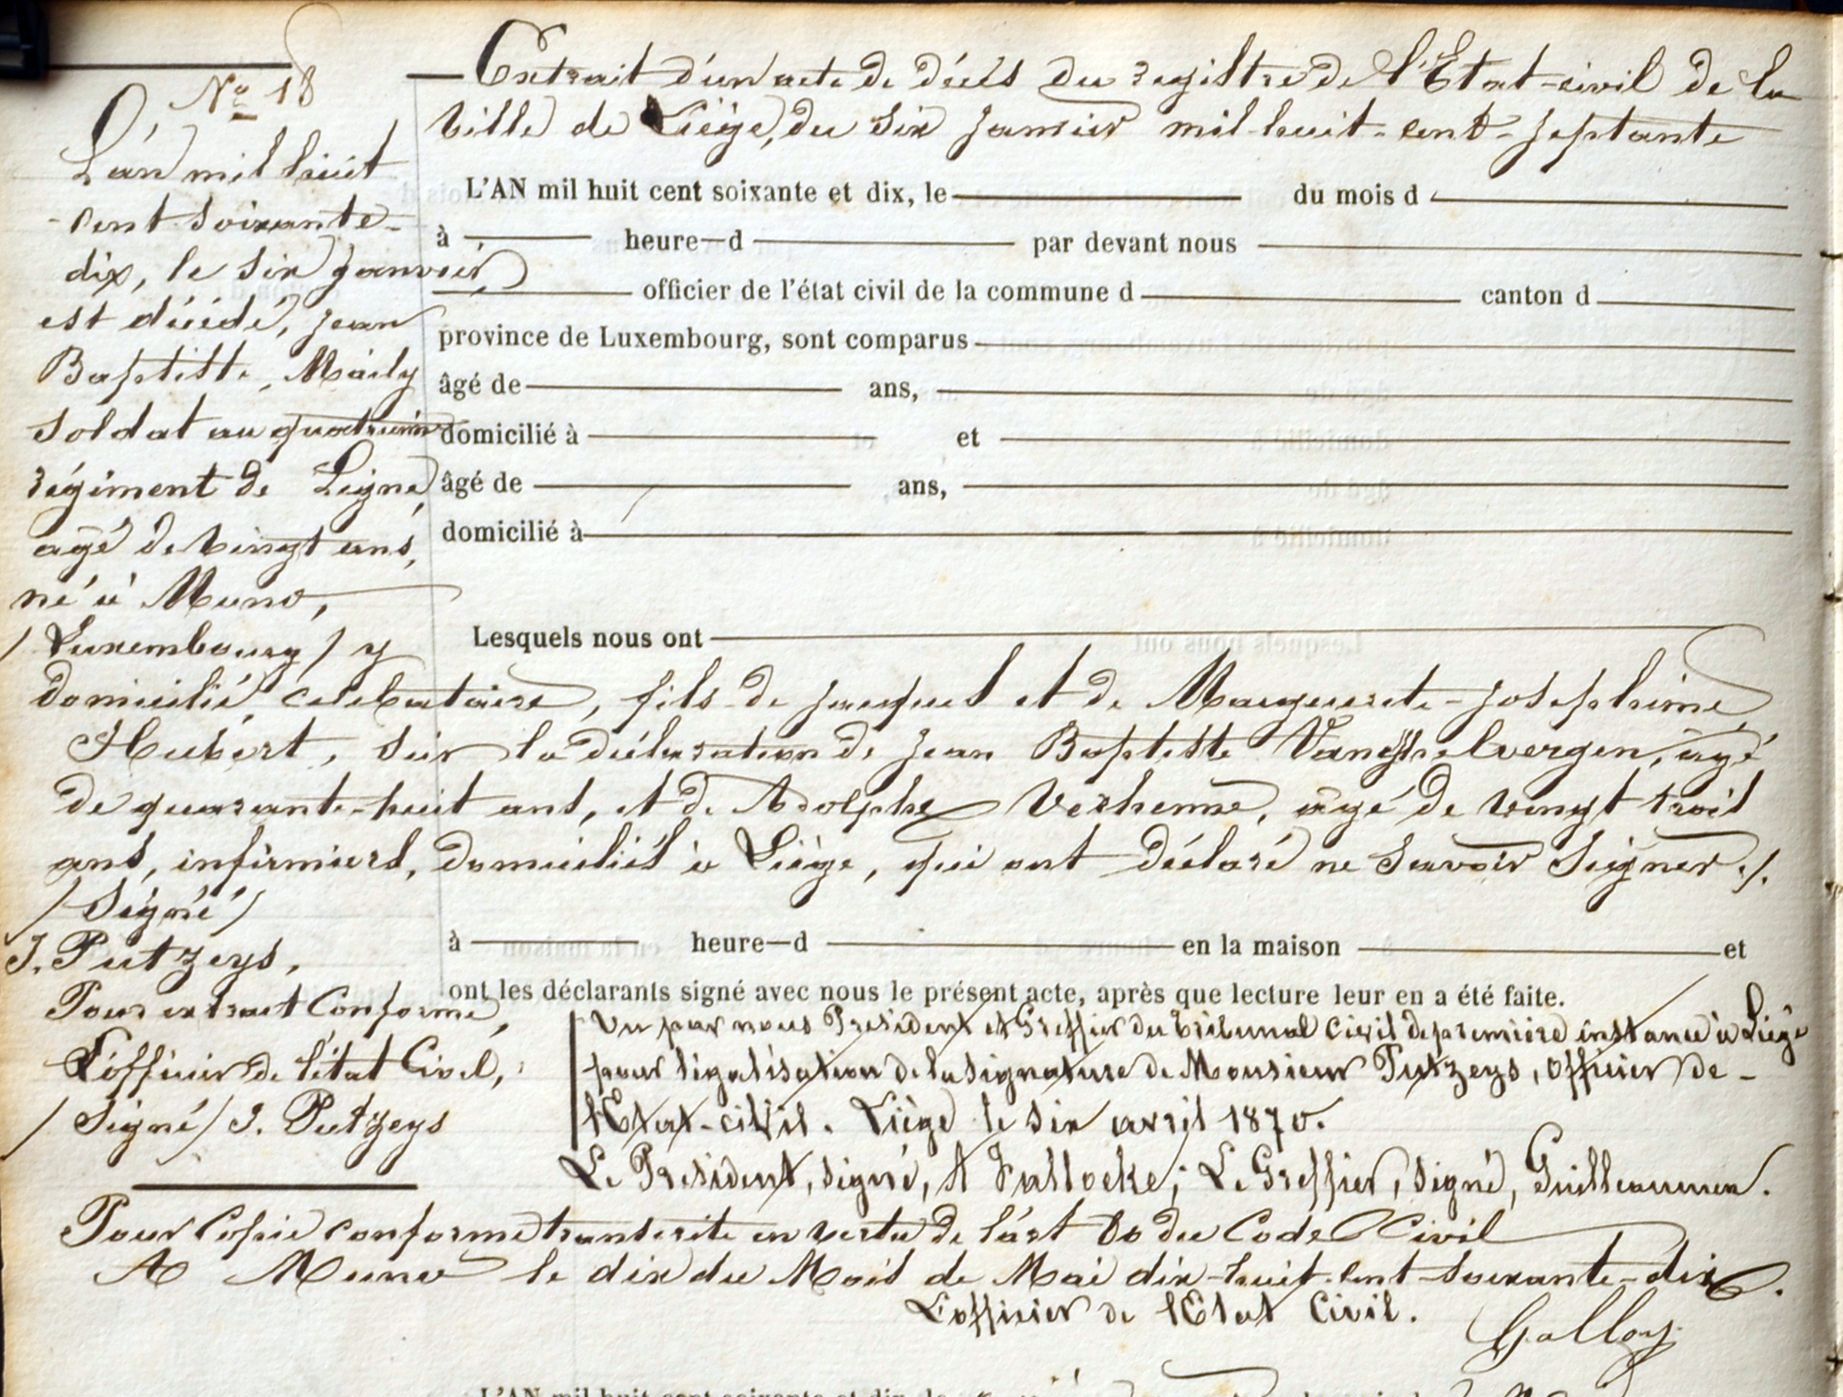 Nº 18
Extrait d'un acte de décès du registre de l'Etat-civil de la
Ville de Liège, du six janvier mil-huit-cent-septante
L'an mil huit
cent soixante-
dix, le six janvier,
est décédé, jean
Baptiste, Maily
soldat au quatrième
régiment de Ligne,
agé de vingt ans,
né à Muno,
/ Luxembourg / y
L'AN mil huit cent soixante et dix, le du mois d
à heure d par devant nous
officier de l'état civil de la commune d canton d
province de Luxembourg, sont comparus
âgé de ans,
domicilié à et
âgé de ans,
domicilié à
Lesquels nous ont
domicilié, celebataire, fils de jacques et de Marguerete-josephine
Hubert, sur la déclaration de jean Baptiste, âgé
de quarante-huit ans, et de Adolphe Verhenne, âgé de vingt trois
ans, infirmiers, domiciliés à Liège, qui ont déclaré ne savoir signer ./.
/ Signé /
J. Putzeys,
Pour extrait Conforme,
L'officier de l'état Civil,
/ Signé / J. Putzeys
à heure d en la maison et
ont les déclarants signé avec nous le présent acte, après que lecture leur en a été faite.
Vu par nous President et Greffier du tribunal civil de premiere instance à Liége
pour légalisation de la signature de Monsieur Putzeys, officier de-
l'Etat-civil. Liège le six avril 1870.
Le President, signé, A ; Le Greffier, signé, .
Pour Copie conforme transcrite en vertu de l'art 80 du Code Civil
A Muno le dix du Mois de Mai dix-huit-cent-soixante-dix.
L'officier de l'Etat Civil.
Galloy
L'AN mil huit cent soixante et dix, le